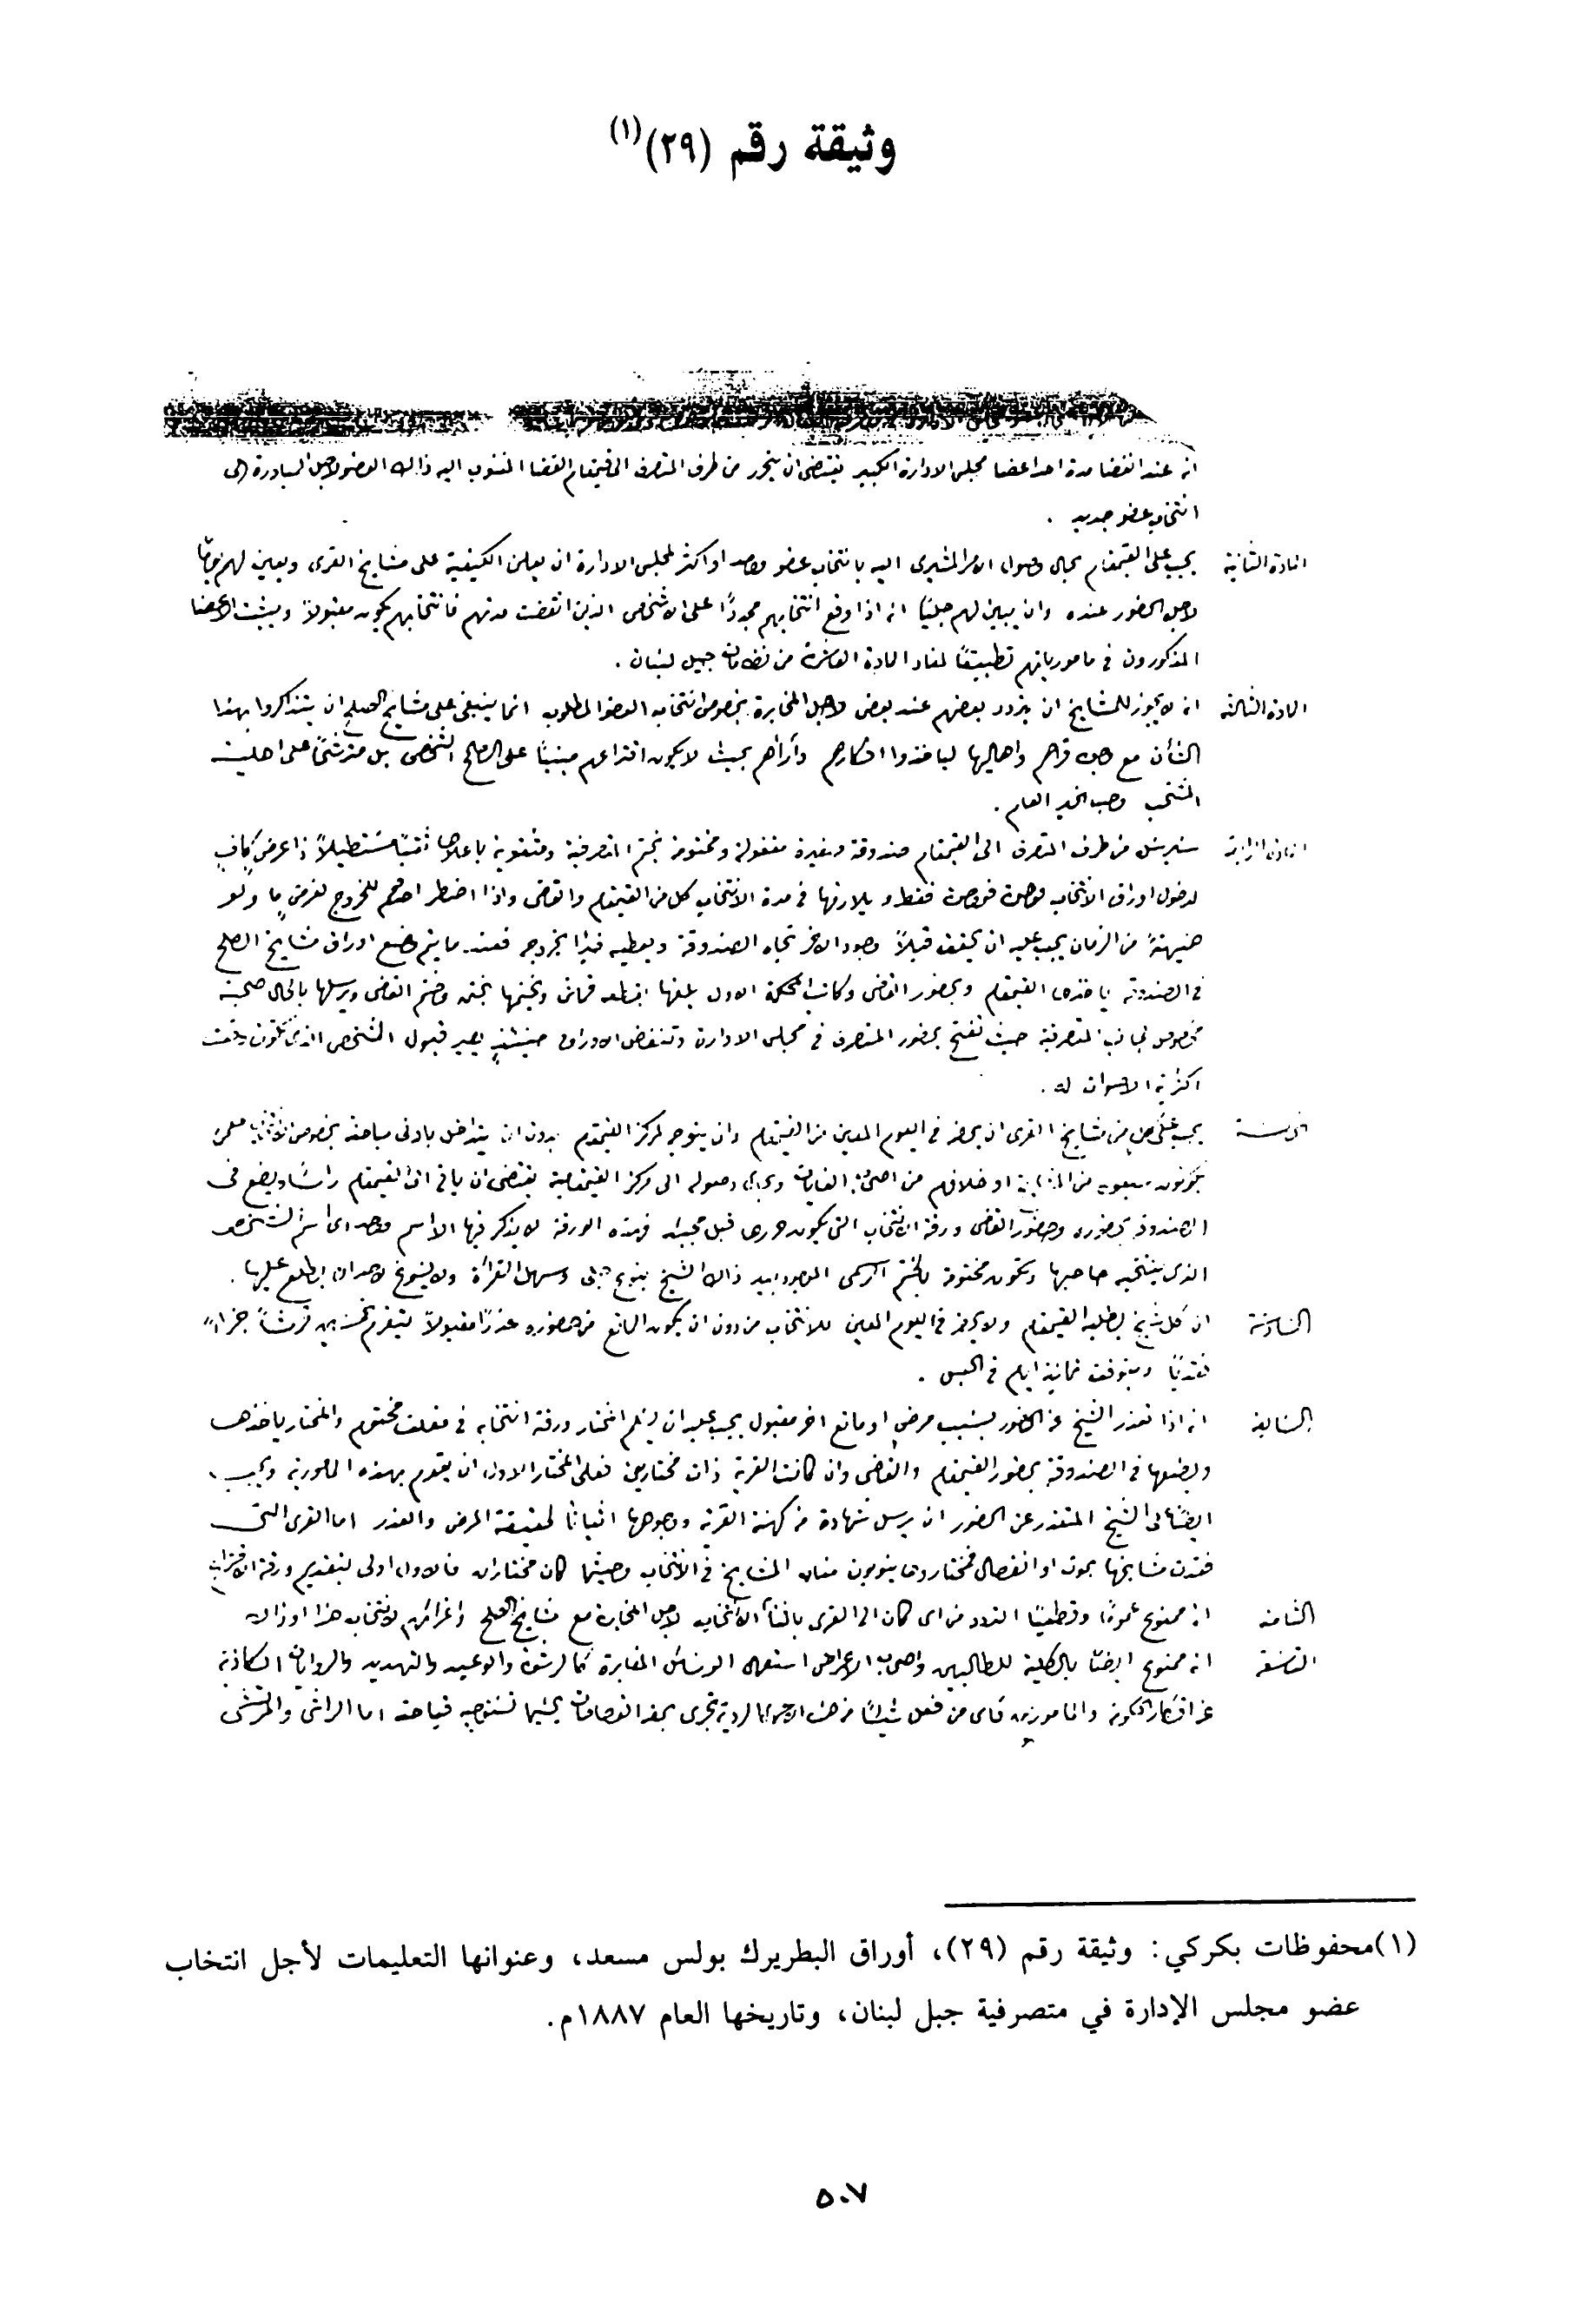 وثيقة رقم (٢٩)(١)
انه عند انقضا مدة احد اعضا مجلس الادارة الكبير يقتضي ان يتحرر من طرف المتصرف الى قيمقام القضا المنسوب اليه ذالك العضو لاجل المبادرة الى
انتخاب عضو جديد .
المادة الثانية يجب على القيمقام بحال وصول الامر المشيري اليه بانتخاب عضو واحد او اكثر لمجلس الادارة ان يعلن الكيفية على مشايخ القرى ويعين لهم
لاجل الحضور عنده وان يبين لهم جلياً انه اذا وقع انتخابهم مجدداً على الاشخاص الذين انقضت مدتهم فانتخابهم يكون مقبولاً ويثبت الاعضا
المذكورون في مامورياتهم تطبيقاً لمفاد المادة العاشرة من نظامات جبل لبنان .
المادة الثالثة انه لا يجوز للمشايخ ان يتردد بعضهم عند بعض لاجل المخابرة بخصوص انتخاب العضو المطلوب انما ينبغي على مشايخ الصلح ان يتذاكروا بهذا
الشأن مع وجوه قراهم واهاليها لياخذوا افكارهم وآراهم بحيث لا يكون اقتراعهم مبنياً على الصالح الشخصي بل على اهلية
المنتخب وحب الخير العام .
المادة الرابعة سيرسل من طرف المتصرف الى القيمقام صندوقة صغيرة مقفولة ومختومة بختم المتصرفية ومثقوبة باعلاها ثقباً مستطيلاً ذا عرض كافٍ
لدخول اوراق الانتخاب واحدة فواحدة فقط و يلازمها في مدة الانتخاب كل من القيمقام والقاضي واذا اضطر احدهم للخروج لغرض ما ولو
هنيهةً من الزمان يجب عليه ان يحقق قبلاً وجود الاخر تجاه الصندوقة ويعطيه خبراً بخروجه فعند ما يتم وضع اوراق مشايخ الصلح
في الصندوقة ياخذها القيمقام وبحضور القاضي وكاتب المحكمة الاول يلفها بقطعة قماش ويختمها بختمه وختم القاضي ويرسلها بالحال صحبة
مخصوص لجانب المتصرفية حيث تفتح بحضور المتصرف في مجلس الادارة وتنفض الاوراق حينئذٍ يصير قبول الشخص الذي تكون وقعت
اكثرية الاصوات له .
الخامسة يجب على كل من مشايخ القرى ان يحضر في اليوم المعين من القيمقام وان يتوجه لمركز القيمقام بدون ان يتداخل بادنى مباحثة بخصوص الانتخاب مع من
من اصحاب الغايات وبحال وصوله الى مركز القيمقامية يقتضي ان ياتي الى القيمقام راساً ويضع في
الصندوقة بحضوره وحضور القاضي ورقة الانتخاب التي يكون حررها قبل مجيئه فهذه الورقة لا يذكر فيها الا اسم واحد اي اسم الشخص
الذي ينتخبه صاحبها وتكون مختومة بالختم الرسمي الموجود بيد ذالك الشيخ بنوع جلي وسهل القرأة ولا يسوغ لاحد ان يطلع عليها .
السادسة ان كل شيخ يطلبه القيمقام ولا يحضر في اليوم المعين للانتخاب من دون ان يكون المانع من حضوره عذراً مقبولاً يتغرم بخمسين قرشاً جزاءً
نقدياً ويتوقف ثمانية ايام في الحبس .
السابعة انه اذا تعذر الشيخ عن الحضور بسبب مرض او مانع اخر مقبول يجب عليه ان يسلم المختار ورقة انتخابه في مغلف مختوم والمختار ياخذها
ويضعها في الصندوقة بحضور القيمقام والقاضي وان كانت القرية ذات مختارين فعلى المختار الاول ان يقوم بهذه المامورية ويجب
ايضاً على الشيخ المتعذر عن الحضور ان يرسل شهادة من كهنة القرية ووجوهها اثباتاً لحقيقة المرض والعذر اما القرى التي
فقدت مشايخها بموت او انفصال فمختاروها ينوبون مناب المشايخ في الانتخاب وحيثما كان مختاران فالاول اولى بتقديم ورقة الاقتراب
الثامنة انه ممنوع عموماً وقطعياً التردد من اي كان الى القرى باثنا الانتخاب لاجل المخابرة مع مشايخ الصلح واغرائهم لانتخاب هذا او ذاك
التاسعة انه ممنوع ايضاً بالكلية للطالبين واصحاب الاغراض استعمال الوسائل المغايرة كالرشوة والوعيد والتهديد والروايات الكاذبة
عن افكار الحكومة والمامورين فاي من فعل شياً من هذه الردية تجرى بحقه القصاصات حسبما تستوجبه قباحته اما الراشي والمرتشي
(١) محفوظات بكركي: وثيقة رقم (٢٩)، أوراق البطريرك بولس مسعد، وعنوانها التعليمات لأجل انتخاب
عضو مجلس الإدارة في متصرفية جبل لبنان، وتاريخها العام ١٨٨٧م.
٥٠٧